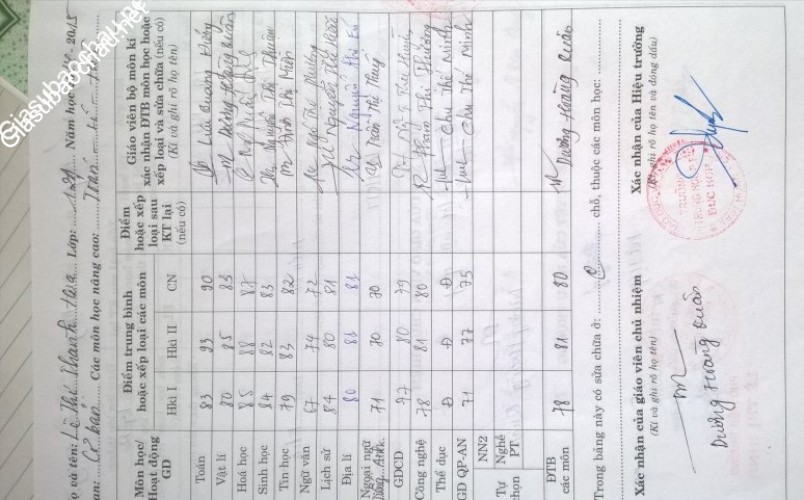 Giasubachkhoa.net
Họ và tên: Lê Thị Thanh Hoa Lớp: 12A9 Năm học 20 - 2015
Ban: Cơ bản Các môn học nâng cao: Toán
Môn học/ Hoạt động GD
Điểm trung bình hoặc xếp loại các môn
Hkì I Hkì II CN
Điểm hoặc xếp loại sau KT lại (nếu có)
Giáo viên bộ môn kí xác nhận ĐTB môn học hoặc xếp loại và sửa chữa (nếu có)
(Kí và ghi rõ họ tên)
Toán 83 93 90 Lưu Quang
Vật lí 80 85 83 Dương Hoàng Quân
Hoá học 85 88 87
Sinh học 84 82 83 Nguyễn Thị Thuận
Tin học 79 83 82 Đinh Thị Miên
Ngữ văn 67 74 72 Ngô Thị Phương
Lịch sử 84 80 81 Nguyễn Thị
Địa lí 80 81 81 Nguyễn Thị Tú
Ngoại ngữ 71 70 70 Trần Thị Thuý
Tiếng Anh
GDCD 77 80 79
Công nghệ 78 81 80 Phạm Thị Phương
Thể dục Đ Đ Đ Chu Thế Minh
GD QP-AN 71 77 75 Chu Thế Minh
Tự chọn
NN2
Nghề PT
ĐTB các môn 78 81 80 Dương Hoàng Quân
Trong bảng này có sửa chữa ở: 0 chỗ, thuộc các môn học:
Xác nhận của giáo viên chủ nhiệm
(Kí và ghi rõ họ tên)
Dương Hoàng Quân
Xác nhận của Hiệu trưởng
(Kí, ghi rõ họ tên và đóng dấu)
TRƯỜNG
ĐỨC HỢP